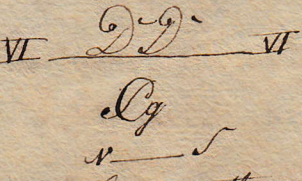 VI DD VI
Cg
N — 5